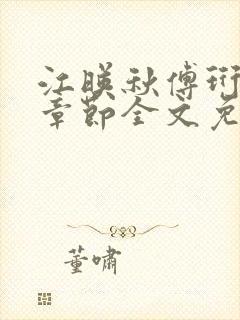 江暎秋傅珩
章节全文免
董啸